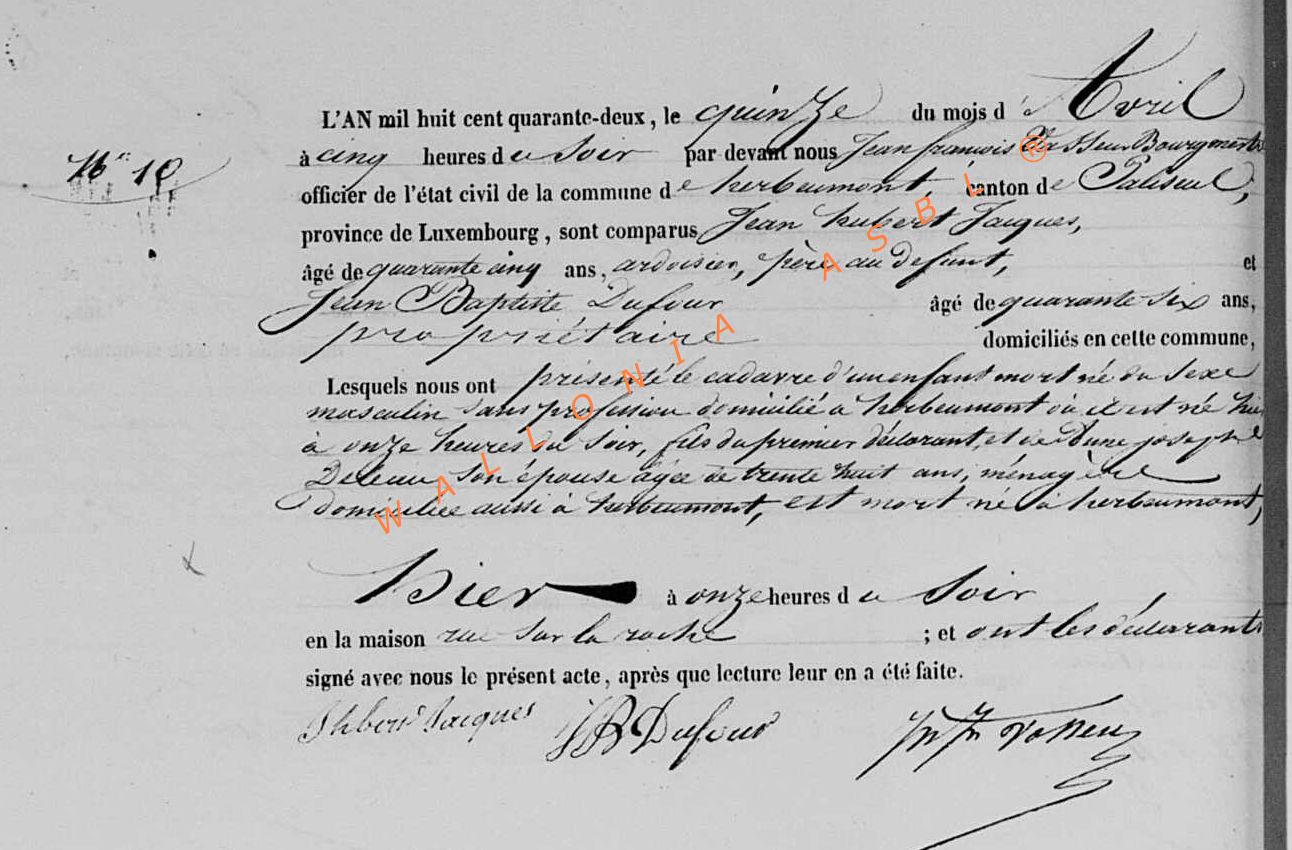 L'AN mil huit cent quarante-deux, le quinze du mois d'Avril
N° 10
à cinq heures du Soir par devant nous Jean françois Bourgmestre
officier de l'état civil de la commune de herbeumont, canton de Paliseul,
province de Luxembourg, sont comparus Jean hubert Jacques,
âgé de quarante cinq ans, ardoisier, père au defunt, et
Jean Baptiste Dufour âgé de quarante six ans,
propriétaire domiciliés en cette commune,
Lesquels nous ont présenté le cadavre d'un enfant mort né du Sexe
masculin Sans profession domicilié à herbeumont où il est né hier
à onze heures du Soir, fils du premier déclarant, et de joseph
son épouse agée de trente huit ans, ménagère
domiciliée aussi à herbeumont, est mort né à herbeumont,
hier à onze heures du Soir
en la maison rue Sur la roche ; et ont les déclarants
signé avec nous le présent acte, après que lecture leur en a été faite.
Jhbert Jacques JB Dufour
WALLONIA ASBL ®